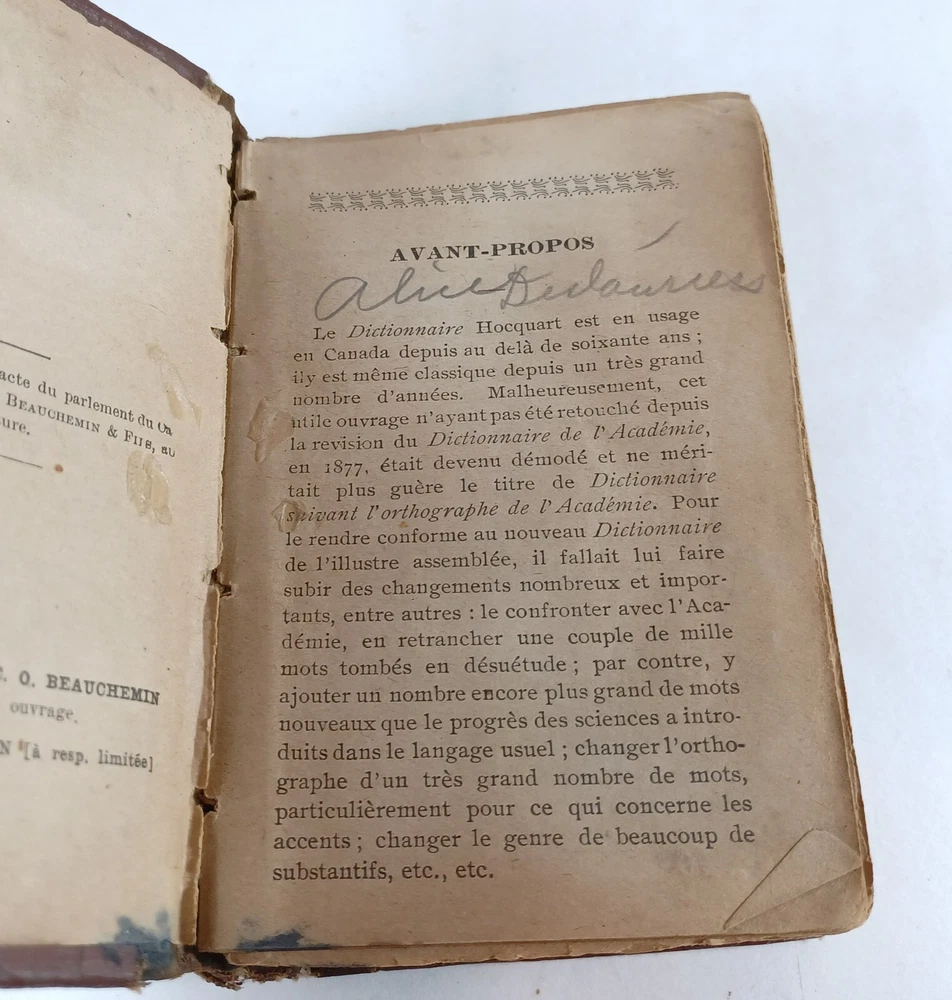 acte du parlement du Ca
BEAUCHEMIN & FILS, au
ure.
. O. BEAUCHEMIN
ouvrage.
N [à resp. limitée]
AVANT-PROPOS
Alice Deslauriers
Le Dictionnaire Hocquart est en usage
en Canada depuis au delà de soixante ans ;
il y est même classique depuis un très grand
nombre d'années. Malheureusement, cet
utile ouvrage n'ayant pas été retouché depuis
la revision du Dictionnaire de l'Académie,
en 1877, était devenu démodé et ne méri-
tait plus guère le titre de Dictionnaire
suivant l'orthographe de l'Académie. Pour
le rendre conforme au nouveau Dictionnaire
de l'illustre assemblée, il fallait lui faire
subir des changements nombreux et impor-
tants, entre autres : le confronter avec l'Aca-
démie, en retrancher une couple de mille
mots tombés en désuétude ; par contre, y
ajouter un nombre encore plus grand de mots
nouveaux que le progrès des sciences a intro-
duits dans le langage usuel ; changer l'ortho-
graphe d'un très grand nombre de mots,
particulièrement pour ce qui concerne les
accents ; changer le genre de beaucoup de
substantifs, etc., etc.